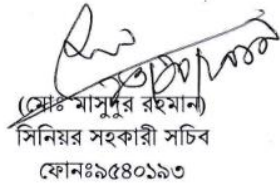 (মোঃ মাসুদুর রহমান)
সিনিয়র সহকারী সচিব
ফোনঃ৯৫৪০১৯৩